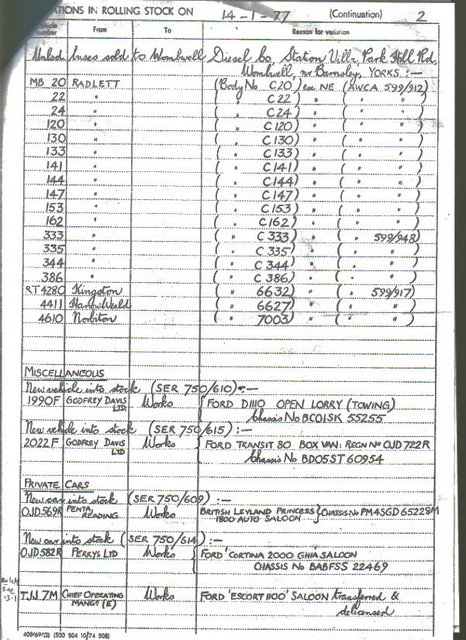 ATIONS IN ROLLING STOCK ON 14-1-77 (Continuation) 2
number From To Reason for variation
Unlsd. buses sold to Wombwell Diesel Co, Station Villr, Park Hill Rd,
Wombwell, nr Barnsley, YORKS :—
MB 20 RADLETT (Body No C20) ex. NE (AWCA 599/912)
22 " ( " C22) " ( " " )
24 " ( " C24) " ( " " )
120 " ( " C120) " ( " " )
130 " ( " C130) " ( " " )
133 " ( " C133) " ( " " )
141 " ( " C141) " ( " " )
144 " ( " C144) " ( " " )
147 " ( " C147) " ( " " )
153 " ( " C153) " ( " " )
162 " ( " C162) " ( " " )
333 " ( " C333) " ( " 599/948)
335 " ( " C335) " ( " " )
344 " ( " C344) " ( " " )
386 " ( " C386) " ( " " )
RT4280 Kingston ( " 6632) " ( " 599/917)
4411 Harrow Weald ( " 6627) " ( " " )
4610 Norbiton ( " 7003) " ( " " )
MISCELLANEOUS
New vehicle into stock (SER 750/610) :—
1990F GODFREY DAVIS LTD Works FORD D1110 OPEN LORRY (TOWING)
Chassis No BC01SK 55255
New vehicle into stock (SER 750/615) :—
2022F GODFREY DAVIS LTD Works FORD TRANSIT 80 BOX VAN: REGN No OJD 722R
Chassis No BD05ST 60954
PRIVATE CARS
New car into stock (SER 750/609) :—
OJD569R PENTA READING Works BRITISH LEYLAND PRINCESS 1800 AUTO SALOON CHASSIS No PM4SGD 65228M
New car into stock (SER 750/614) :—
OJD582R PERRYS LTD Works FORD 'CORTINA 2000 GHIA' SALOON
CHASSIS No BABFSS 22469
7M CHIEF OPERATING MANGR (E) Works FORD 'ESCORT 1100' SALOON transferred &
delicensed
409/69(2) (500 504 10/74 508)